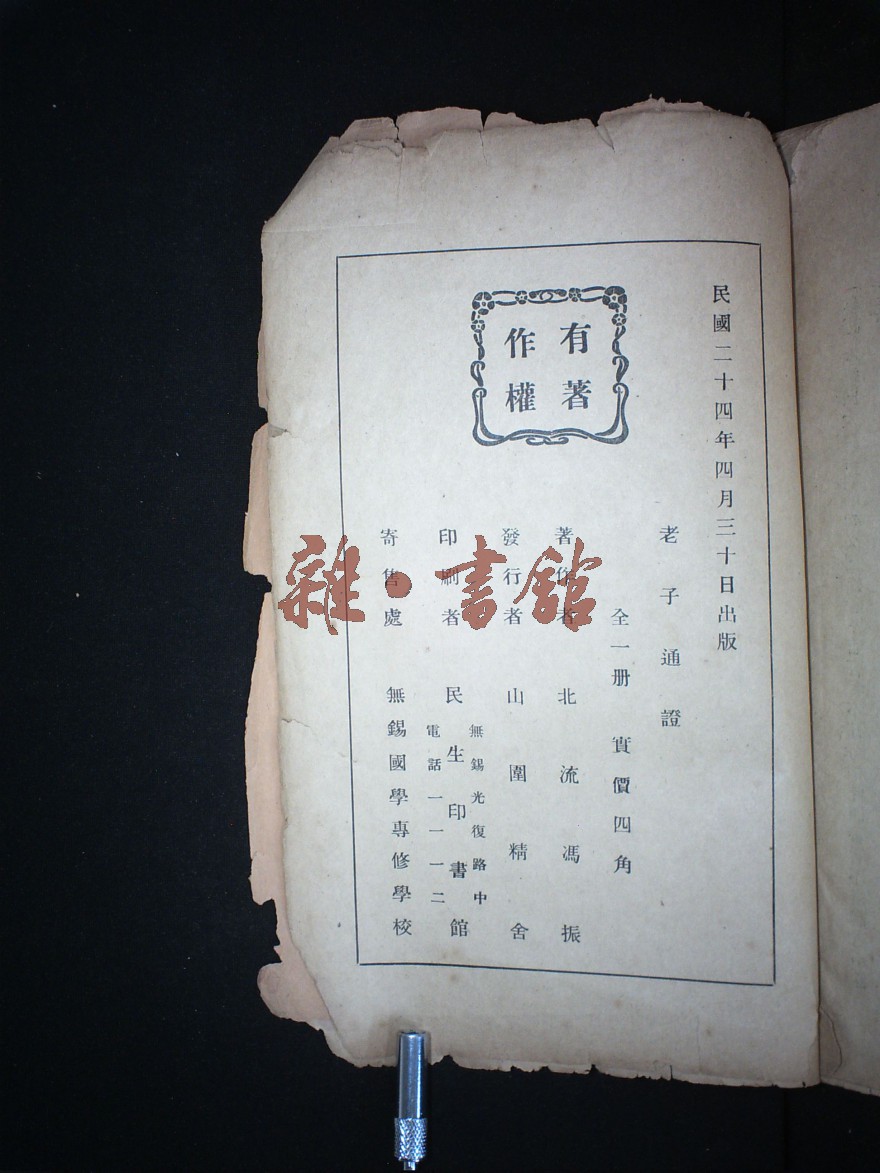 民國二十四年四月三十日出版
老子通證
全一册 實價四角
著作者 北流馮振
發行者 山圍精舍
印刷者 民生印書館
無錫光復路中
電話一一一二
寄售處 無錫國學專修學校
有著作權
雜·書館